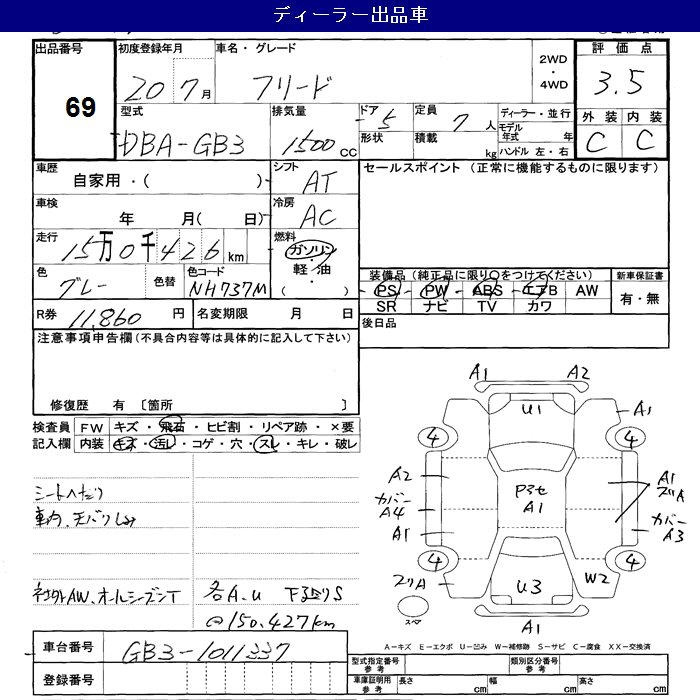 ディーラー出品車
出品番号 初度登録年月 車名・グレード 評価点
69 20 7月 フリード 2WD・4WD 3.5
型式 排気量 ドア 5 定員 7人 ディーラー・並行 外装 内装
DBA-GB3 1500cc 形状 積載 kg モデル年式 年 C C
ハンドル 左・右
車歴 自家用・( ) シフト AT セールスポイント (正常に機能するものに限ります)
車検 年 月( 日) 冷房 AC
走行 15万0千426km 燃料 ガソリン・軽油 ( )
色 グレー 色替 色コード NH737M 装備品 (純正品に限り○をつけてください) 新車保証書
PS PW ABS エアB AW 有・無
SR ナビ TV カワ
R券 11,860円 名変期限 月 日 後日品
注意事項申告欄 (不具合内容等は具体的に記入して下さい)
修復歴 有 〔箇所 〕
検査員 FW キズ・飛石・ヒビ割・リペア跡・×要
記入欄 内装 キズ・汚レ・コゲ・穴・スレ・キレ・破レ
シートヘたり
社外AW、オールシーズンT 各A.U 下廻りS
@150.427km
A1 A2
U1 A1
4 4
A2 P3セ A1
カバー A4 A1 カバー A3
A1
4 4
U3 W2
A1
A－キズ E－エクボ U－凹み W－補修跡 S－サビ C－腐食 XX－交換済
車台番号 GB3-1011337
登録番号
型式指定番号 参考 類別区分番号 参考
車庫証明用 参考 長さ cm 幅 cm 高さ cm